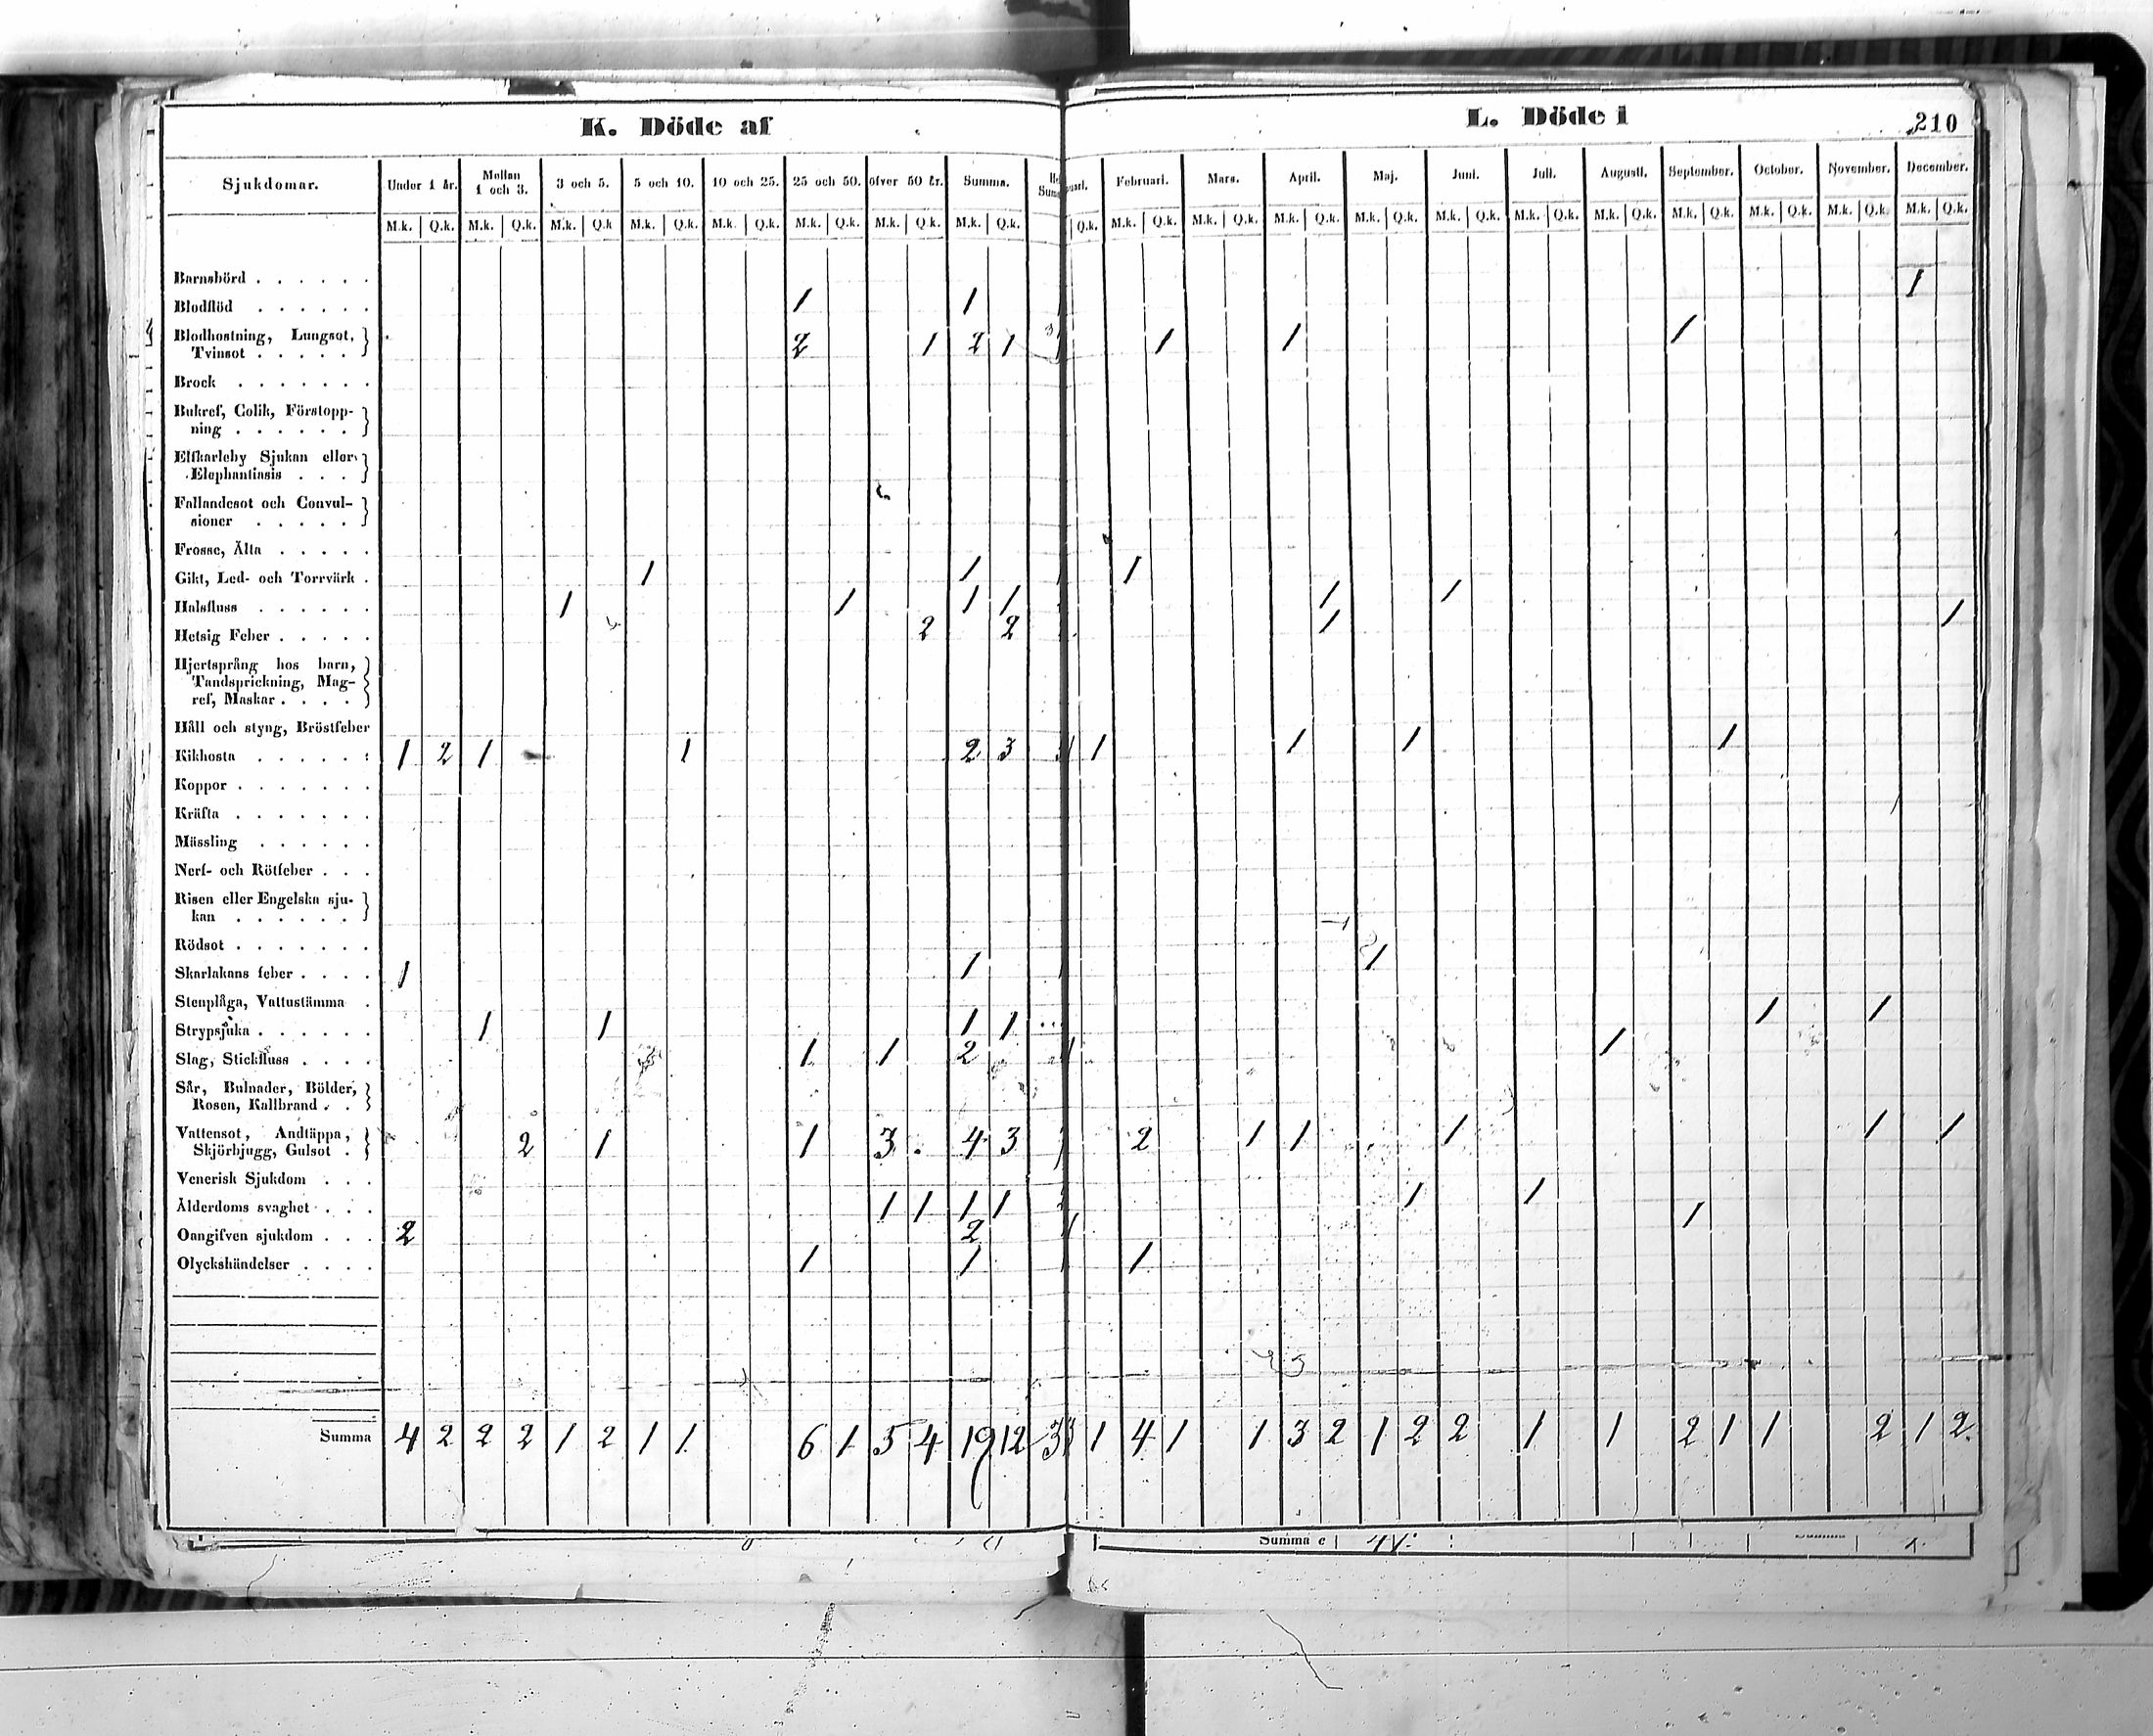 K. Döde af
L. Döde i
210
Sjukdomar. Under 1 år. Mellan 1 och 3. 3 och 5. 5 och 10. 10 och 25. 25 och 50. öfver 50 år. Summa. Februari. Mars. April. Maj. Juni. Juli. Augusti. September. October. November. December.
M.k. Q.k. M.k. Q.k. M.k. Q.k M.k. Q.k. M.k. Q.k. M.k. Q.k. M.k. Q.k. M.k. Q.k. Q.k. M.k. Q.k. M.k. Q.k. M.k. Q.k. M.k. Q.k. M.k. Q.k. M.k. Q.k. M.k. Q.k. M.k. Q.k. M.k. Q.k. M.k. Q.k. M.k. Q.k.
Barnsbörd . . . . . .
Blodflöd . . . . . 1 1 1
Blodhostning, Lungsot,
Tvinsot . . . . . 2 1 2 1 1 1 1
Brock . . . . . . .
Bukref, Colik, Förstopp-
ning . . . . . .
Elfkarleby Sjukan eller
Elephantiasis . . .
Fallandesot och Convul-
sioner . . . . .
Frosse, Älta . . . . .
Gikt, Led- och Torrvärk . 1 1 1
Halsfluss . . . . . . 1 1 1 1 1 1
Hetsig Feber . . . . . 2 2 1 1
Hjertsprång hos barn,
Tandsprickning, Mag-
ref, Maskar . . . .
Håll och styng, Bröstfeber
Kikhosta . . . . . . 1 2 1 1 2 3 1 1 1 1 1
Koppor . . . . . . .
Kräfta . . . . . . .
Mässling . . . . . .
Nerf- och Rötfeber . . .
Risen eller Engelska sju-
kan . . . . . .
Rödsot . . . . . . .
Skarlakans feber . . . . 1 1 1
Stenplåga, Vattustämma .
Strypsjuka . . . . . . 1 1 1 1 1 1
Slag, Stickfluss . . . . 1 1 2 1 1
Sår, Bulnader, Bölder,
Rosen, Kallbrand . .
Vattensot, Andtäppa,
Skjörbjugg, Gulsot . 2 1 1 3 4 3 2 1 1 1 1 1
Venerisk Sjukdom . . .
Ålderdoms svaghet . . . 1 1 1 1 1 1
Oangifven sjukdom . . . 2 2 1 1
Olyckshändelser . . . . 1 1 1
Summa 4 2 2 2 1 2 1 1 6 1 5 4 19 12 3 1 4 1 1 3 2 1 2 2 1 1 2 1 1 2 1 2
Summa c